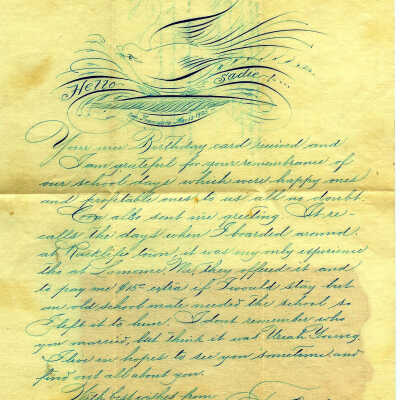 Hello Sadie
Your nice Birthday card recieved and
I am grateful for your remembrance of
our school days which were happy ones
and profitable ones to us all no doubt.
also sent me greeting. It re-
calls the days when I boarded around
at town, it was my only experience
the at Lomaine, Me, they offered it and
to pay me extra if I would stay but
an old school mate needed the school, so
I left it to her. I dont remember who
you married, but think it was Uriah Young.
I live in hopes to see you sometime and
find out all about you.
With best wishes from